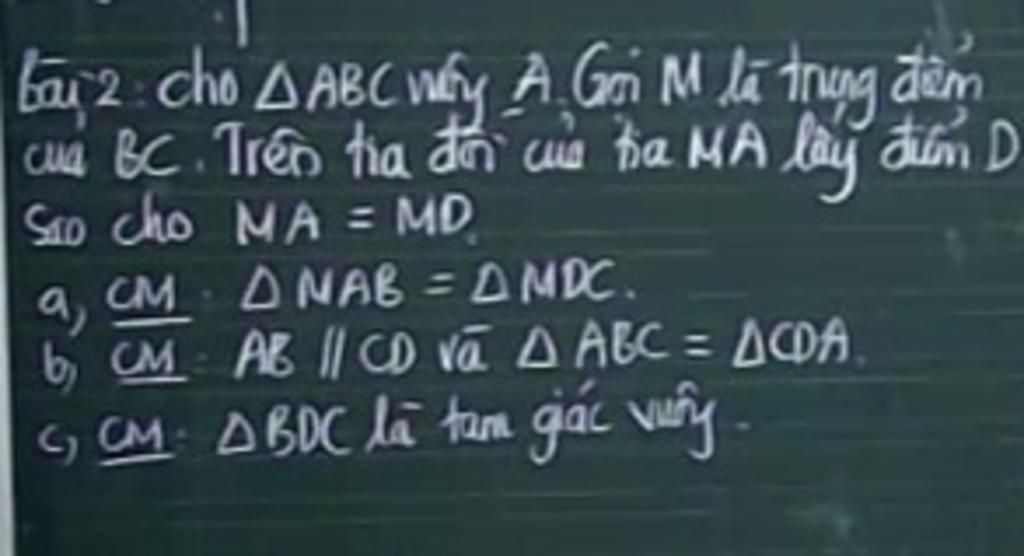 Bài 2: cho △ABC vuông A. Gọi M là trung điểm
của BC. Trên tia đối của tia MA lấy điểm D
Sao cho MA = MD.
a, CM: △MAB = △MDC.
b, CM: AB // CD và △ABC = △CDA.
c, CM: △BDC là tam giác vuông.